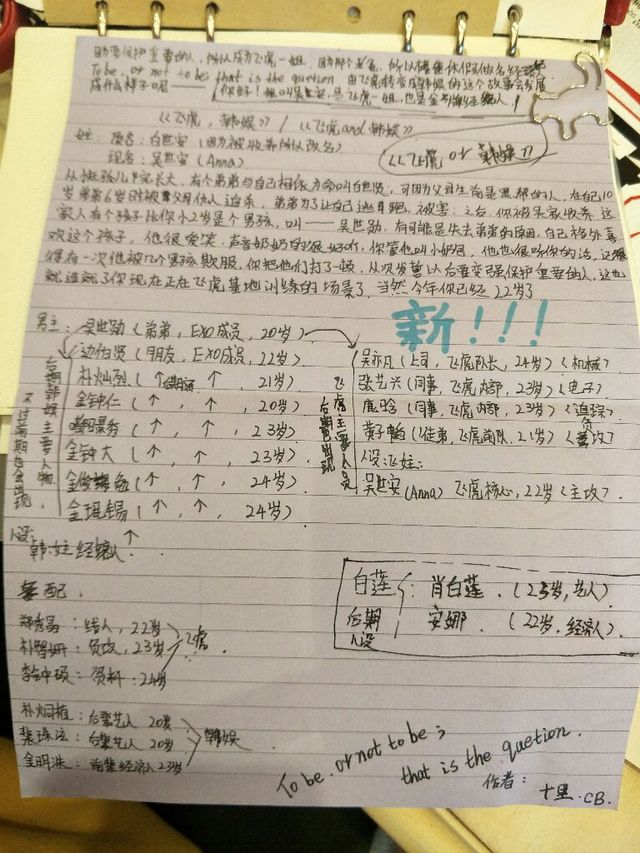 因要保护重要的人，所以成为飞虎一姐，因那个老爸，所以借着休假做名经纪人
To be, or not to be; that is the quetion 由飞虎转变成韩娱的这个故事会发展
成什么样子呢——
你好！我叫吴世安，是飞虎一姐，也是金牌经纪人！
《飞虎，韩娱》/《飞虎and韩娱》
《飞虎 or 韩娱》
女主：原名：白世安（因为被收养所以改名）
现名：吴世安（Anna）
从小在孤儿院长大，有个弟弟与自己相依为命叫白世贤，可因为父母生前是黑帮的人，在自己10
岁弟弟6岁时被父母仇人追杀，弟弟为了让自己逃跑，被害；之后，你被吴家收养，这
家人有个孩子比你小2岁是个男孩，叫——吴世勋。有可能是失去弟弟的原因，自己格外喜
欢这个孩子，他很爱笑，声音奶奶的很好听，你管他叫小奶包，他也很听你的话，还记
得有一次他被几个男孩欺服，你把他们打了一顿，从次发誓以后要变强保护重要的人，这也
就造就了你现在正在飞虎基地训练的场景了，当然今年你已经22岁了
新！！！
男主：吴世勋（弟弟，EXO成员，20岁）
边伯贤（朋友，EXO成员，22岁）
朴灿烈（↑，↑，21岁）
金钟仁（↑，↑，20岁）
都暻秀（↑，↑，23岁）
金钟大（↑，↑，23岁）
金俊勉（↑，↑，24岁）
金珉锡（↑，↑，24岁）
后期韩娱主要人物
不过前期也会出现
人设：
韩：女主 经纪人↑
吴亦凡（上司，飞虎队长，24岁）《机械》
张艺兴（同事，飞虎内部，23岁）《电子》
鹿晗（同事，飞虎内部，23岁）《追踪》
黄子韬（徒弟，飞虎副队，21岁）《副攻》
人设：飞：女主：
吴世安（Anna）飞虎核心，22岁《主攻》
飞虎主要人员
后期也会出现
白莲：肖白莲．（23岁，艺人）
后期 安娜．（22岁，经纪人）
人设
搭配，
郑秀晶：线人，22岁
朴智妍：负攻，23岁
李钟硕：资料，24岁
飞虎
朴炯植：后辈艺人 20岁
裴珠泫：后辈艺人 20岁
金明洙：前辈经纪人 23岁
韩娱
To be. or not to be;
that is the quetion.
作者：
十里．CB．